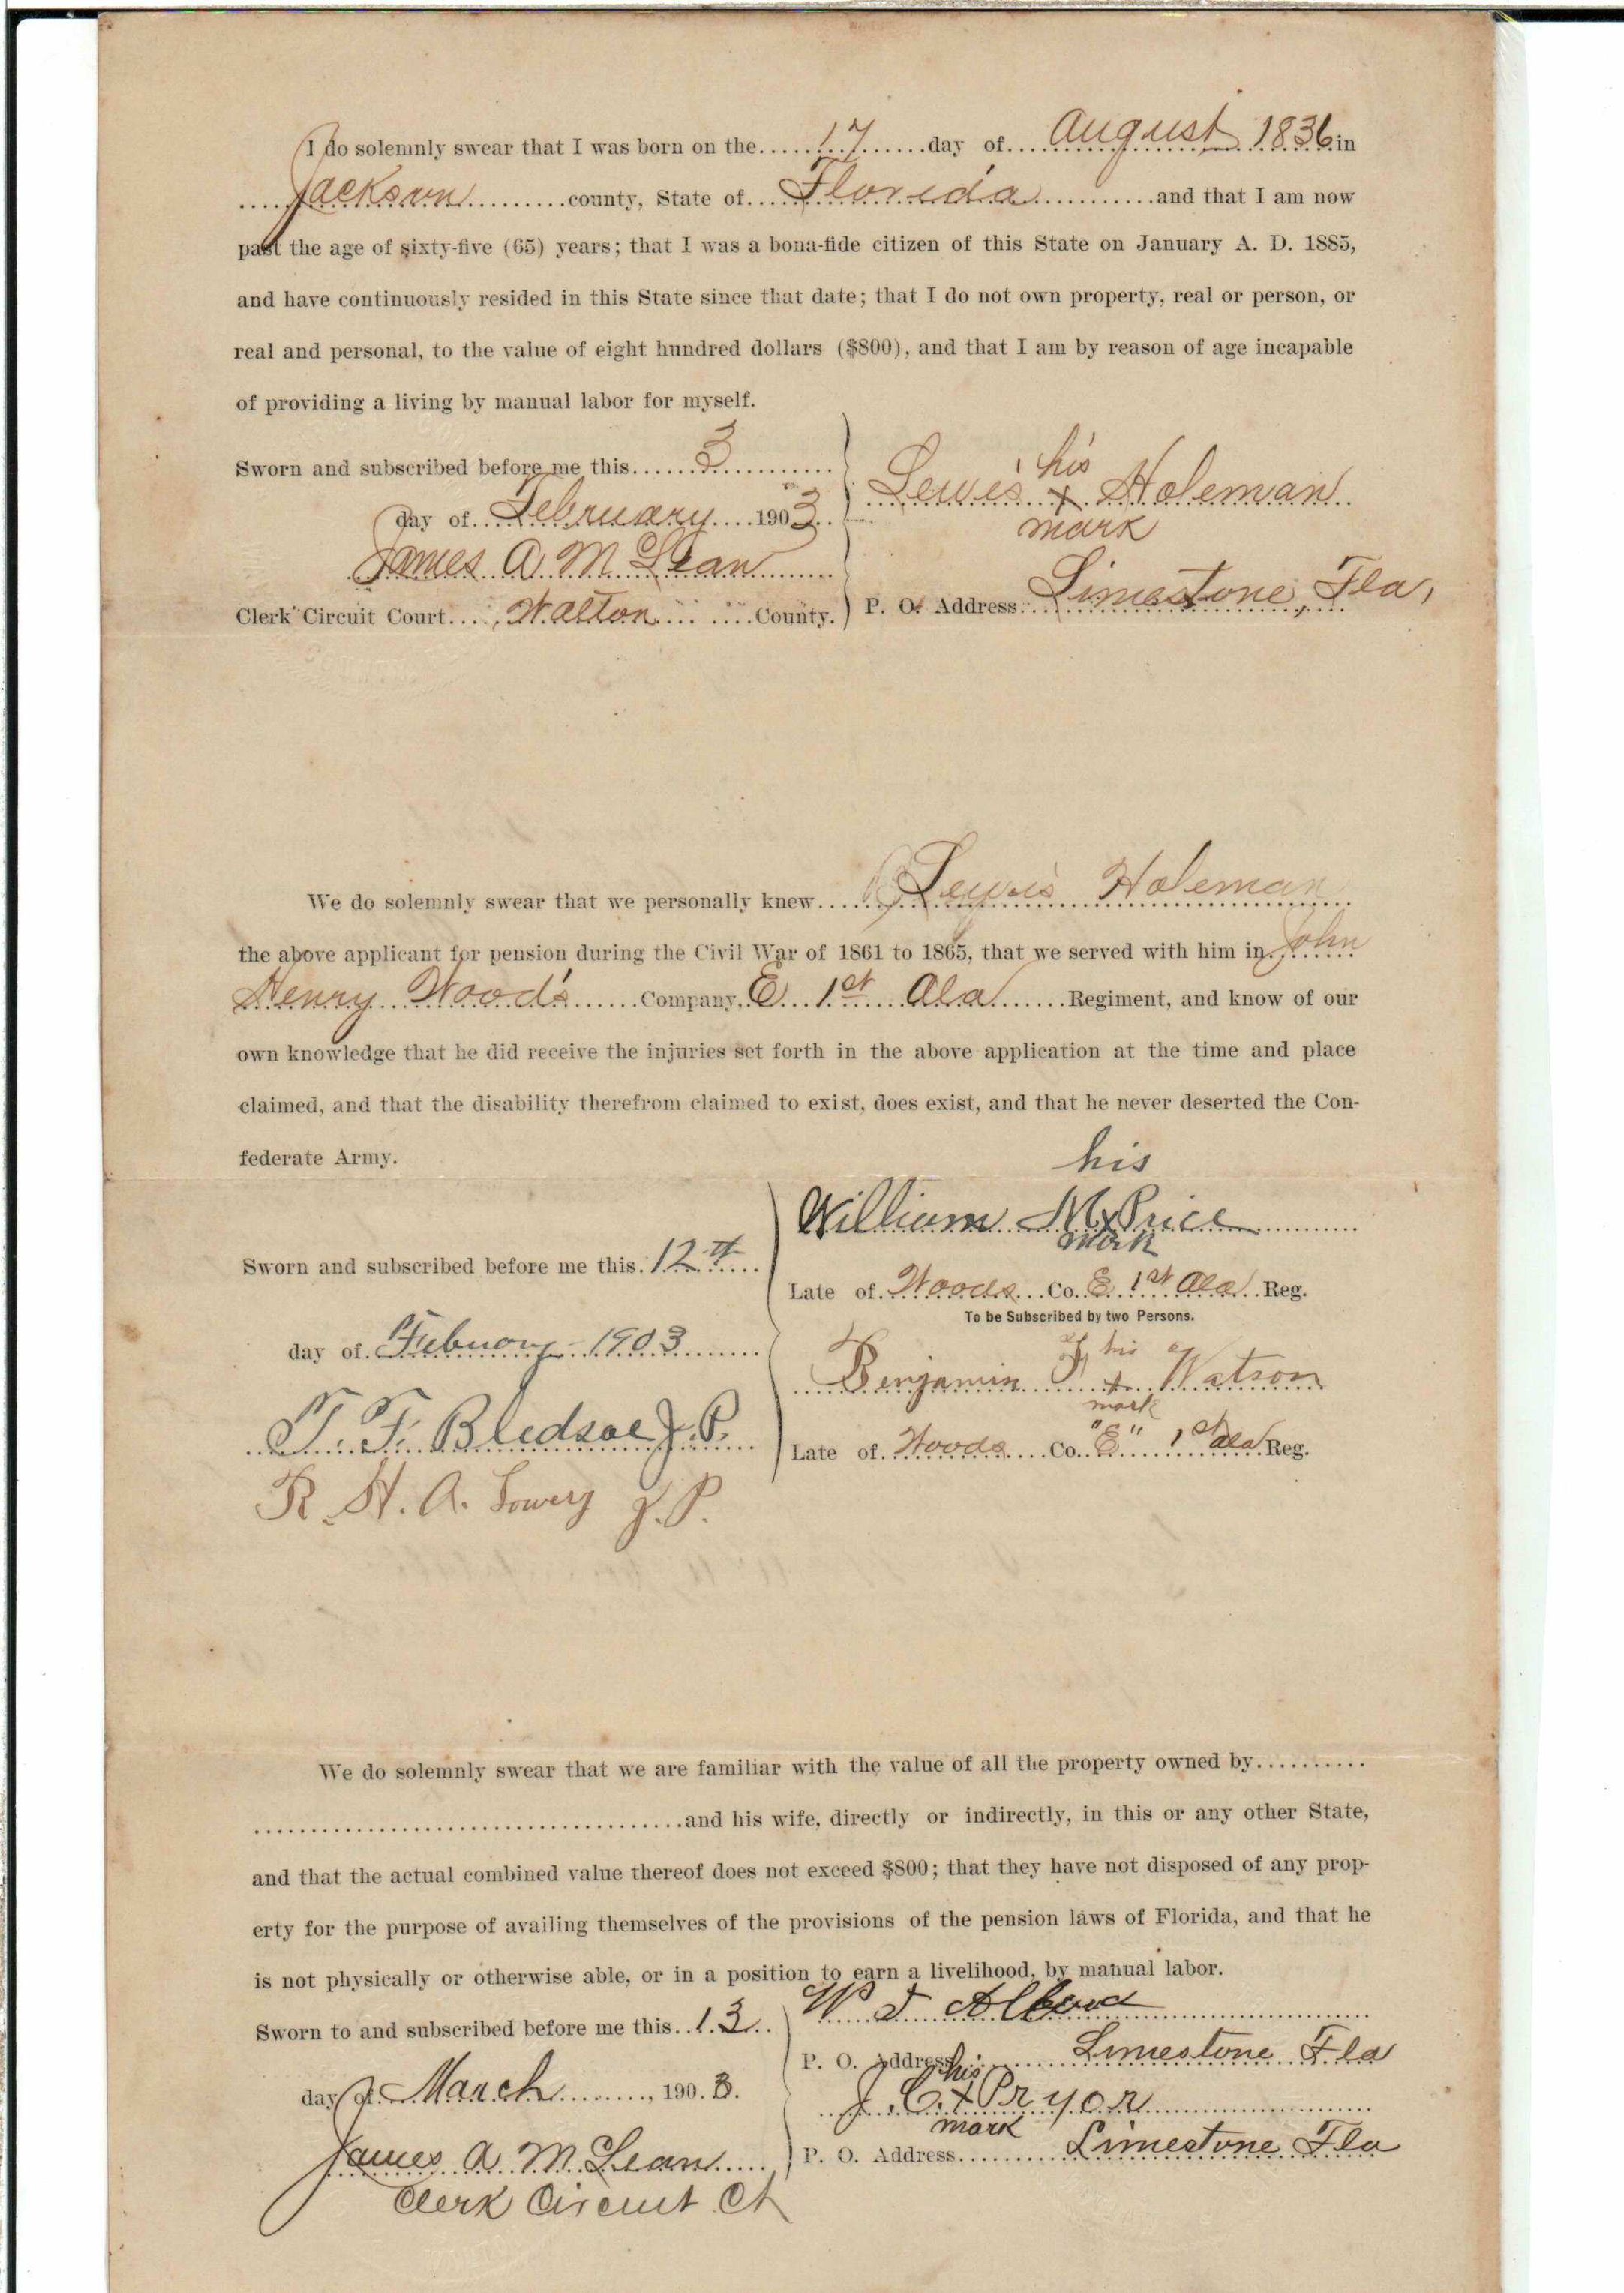 I do solemnly swear that I was born on the.....17......day of....August 1836 in
....Jackson..........county, State of....Florida............and that I am now
past the age of sixty-five (65) years; that I was a bona-fide citizen of this State on January A. D. 1885,
and have continuously resided in this State since that date; that I do not own property, real or person, or
real and personal, to the value of eight hundred dollars ($800), and that I am by reason of age incapable
of providing a living by manual labor for myself.
Sworn and subscribed before me this......3...........
day of..February....1903..
James A McLean
Clerk Circuit Court....Walton....County.
his
Lewis x Holeman
mark
P. O. Address..Limestone, Fla,
We do solemnly swear that we personally knew....Lewis Holeman
the above applicant for pension during the Civil War of 1861 to 1865, that we served with him in John
Henry Wood's......Company, E 1st Ala......Regiment, and know of our
own knowledge that he did receive the injuries set forth in the above application at the time and place
claimed, and that the disability therefrom claimed to exist, does exist, and that he never deserted the Con-
federate Army.
Sworn and subscribed before me this.12th....
day of.Febuary 1903.......
T. F. Bledsoe J. P.
R. H. A. Lowery J. P.
his
William M x Price
mark
Late of.Woods...Co..E 1st Ala..Reg.
To be Subscribed by two Persons.
his
Benjamin F x Watson
mark
Late of.Woods....Co.."E" 1st Ala Reg.
We do solemnly swear that we are familiar with the value of all the property owned by..........
......................................and his wife, directly or indirectly, in this or any other State,
and that the actual combined value thereof does not exceed $800; that they have not disposed of any prop-
erty for the purpose of availing themselves of the provisions of the pension laws of Florida, and that he
is not physically or otherwise able, or in a position to earn a livelihood, by manual labor.
Sworn to and subscribed before me this..13..
day of.March........, 190.3.
James A McLean
Clerk Circuit Ct
W J
P. O. Address......Limestone Fla
his
J. C. x Pryor
mark
P. O. Address..........Limestone Fla